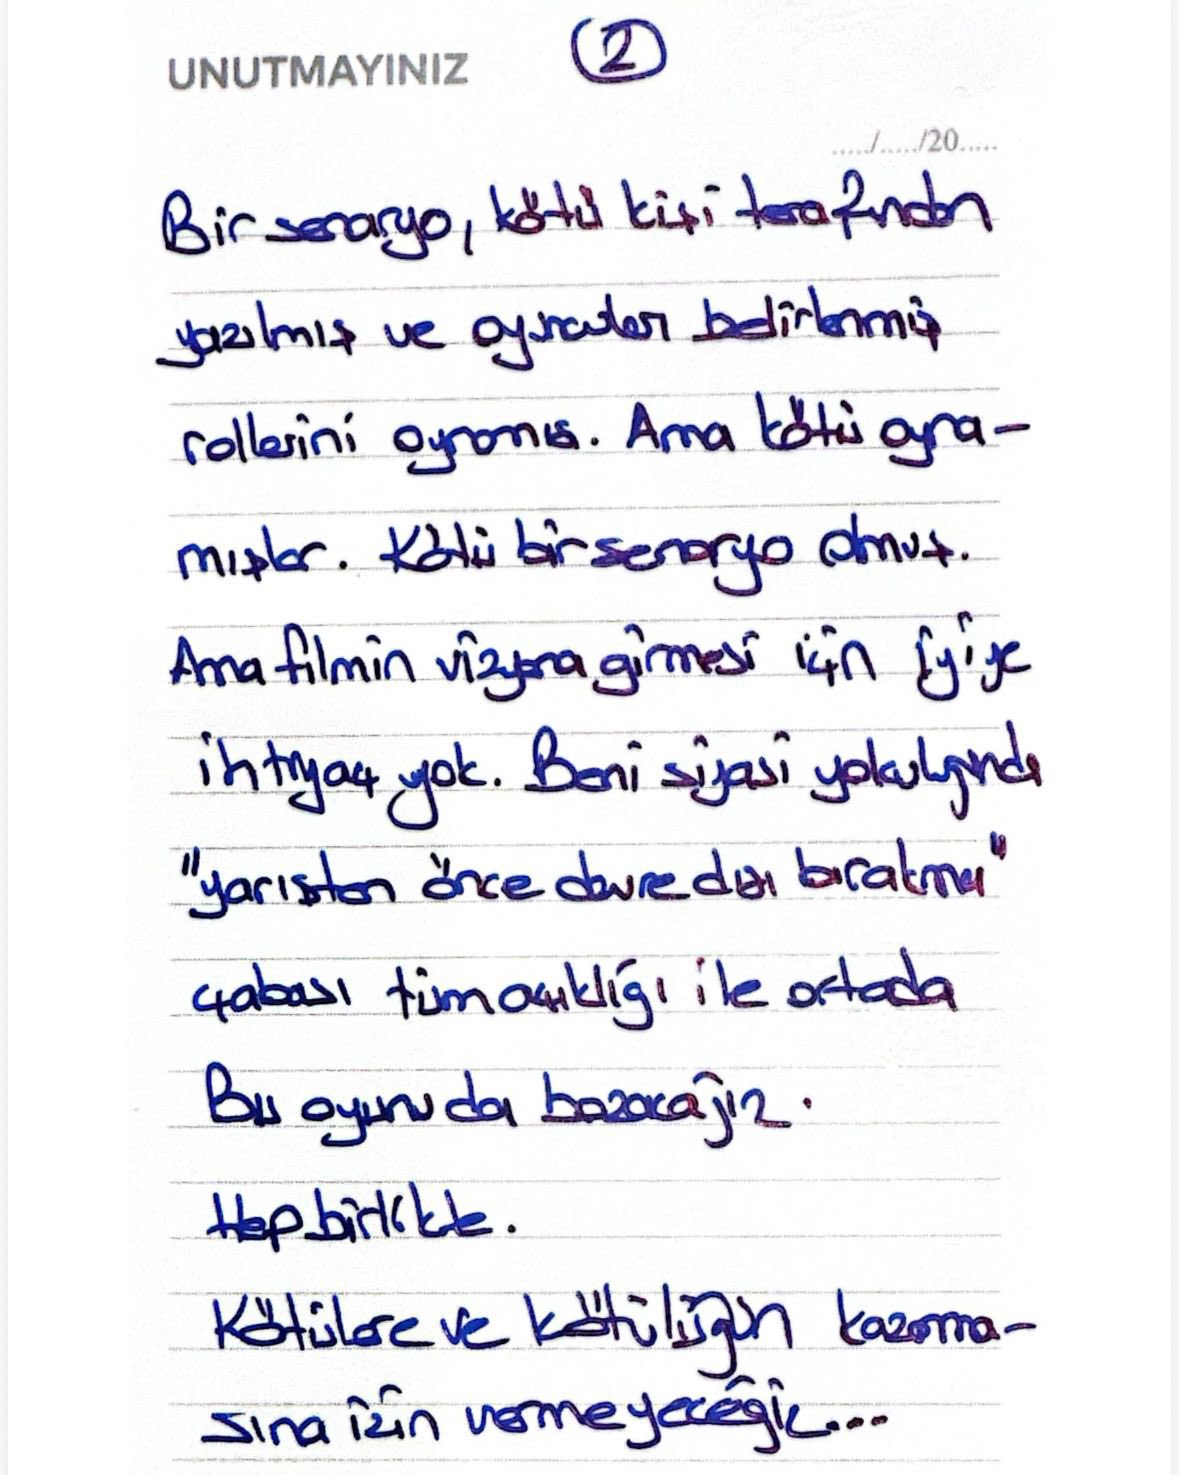 UNUTMAYINIZ
2
...../...../20.....
Bir senaryo, kötü kişi tarafından
yazılmış ve oyuncular belirlenmiş
rollerini oynamış. Ama kötü oyna-
mışlar. Kötü bir senaryo olmuş.
Ama filmin vizyona girmesi için iyiye
ihtiyaç yok. Beni siyasi yolculuğunda
"yarıştan önce devre dışı bırakma"
çabası tüm açıklığı ile ortada
Bu oyunu da bozacağız.
Hep birlikte.
Kötülere ve kötülüğün kazanma-
sına izin vermeyeceğiz...